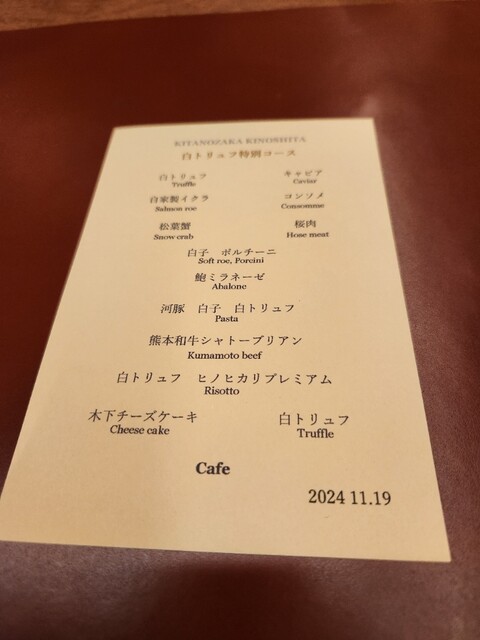 KITANOZAKA KINOSHITA
白トリュフ特別コース
白トリュフ キャビア
Truffle Caviar
自家製イクラ コンソメ
Salmon roe Consomme
松葉蟹 桜肉
Snow crab Hose meat
白子 ポルチーニ
Soft roe, Porcini
鮑ミラネーゼ
Abalone
河豚 白子 白トリュフ
Pasta
熊本和牛シャトーブリアン
Kumamoto beef
白トリュフ ヒノヒカリプレミアム
Risotto
木下チーズケーキ 白トリュフ
Cheese cake Truffle
Cafe
2024 11.19